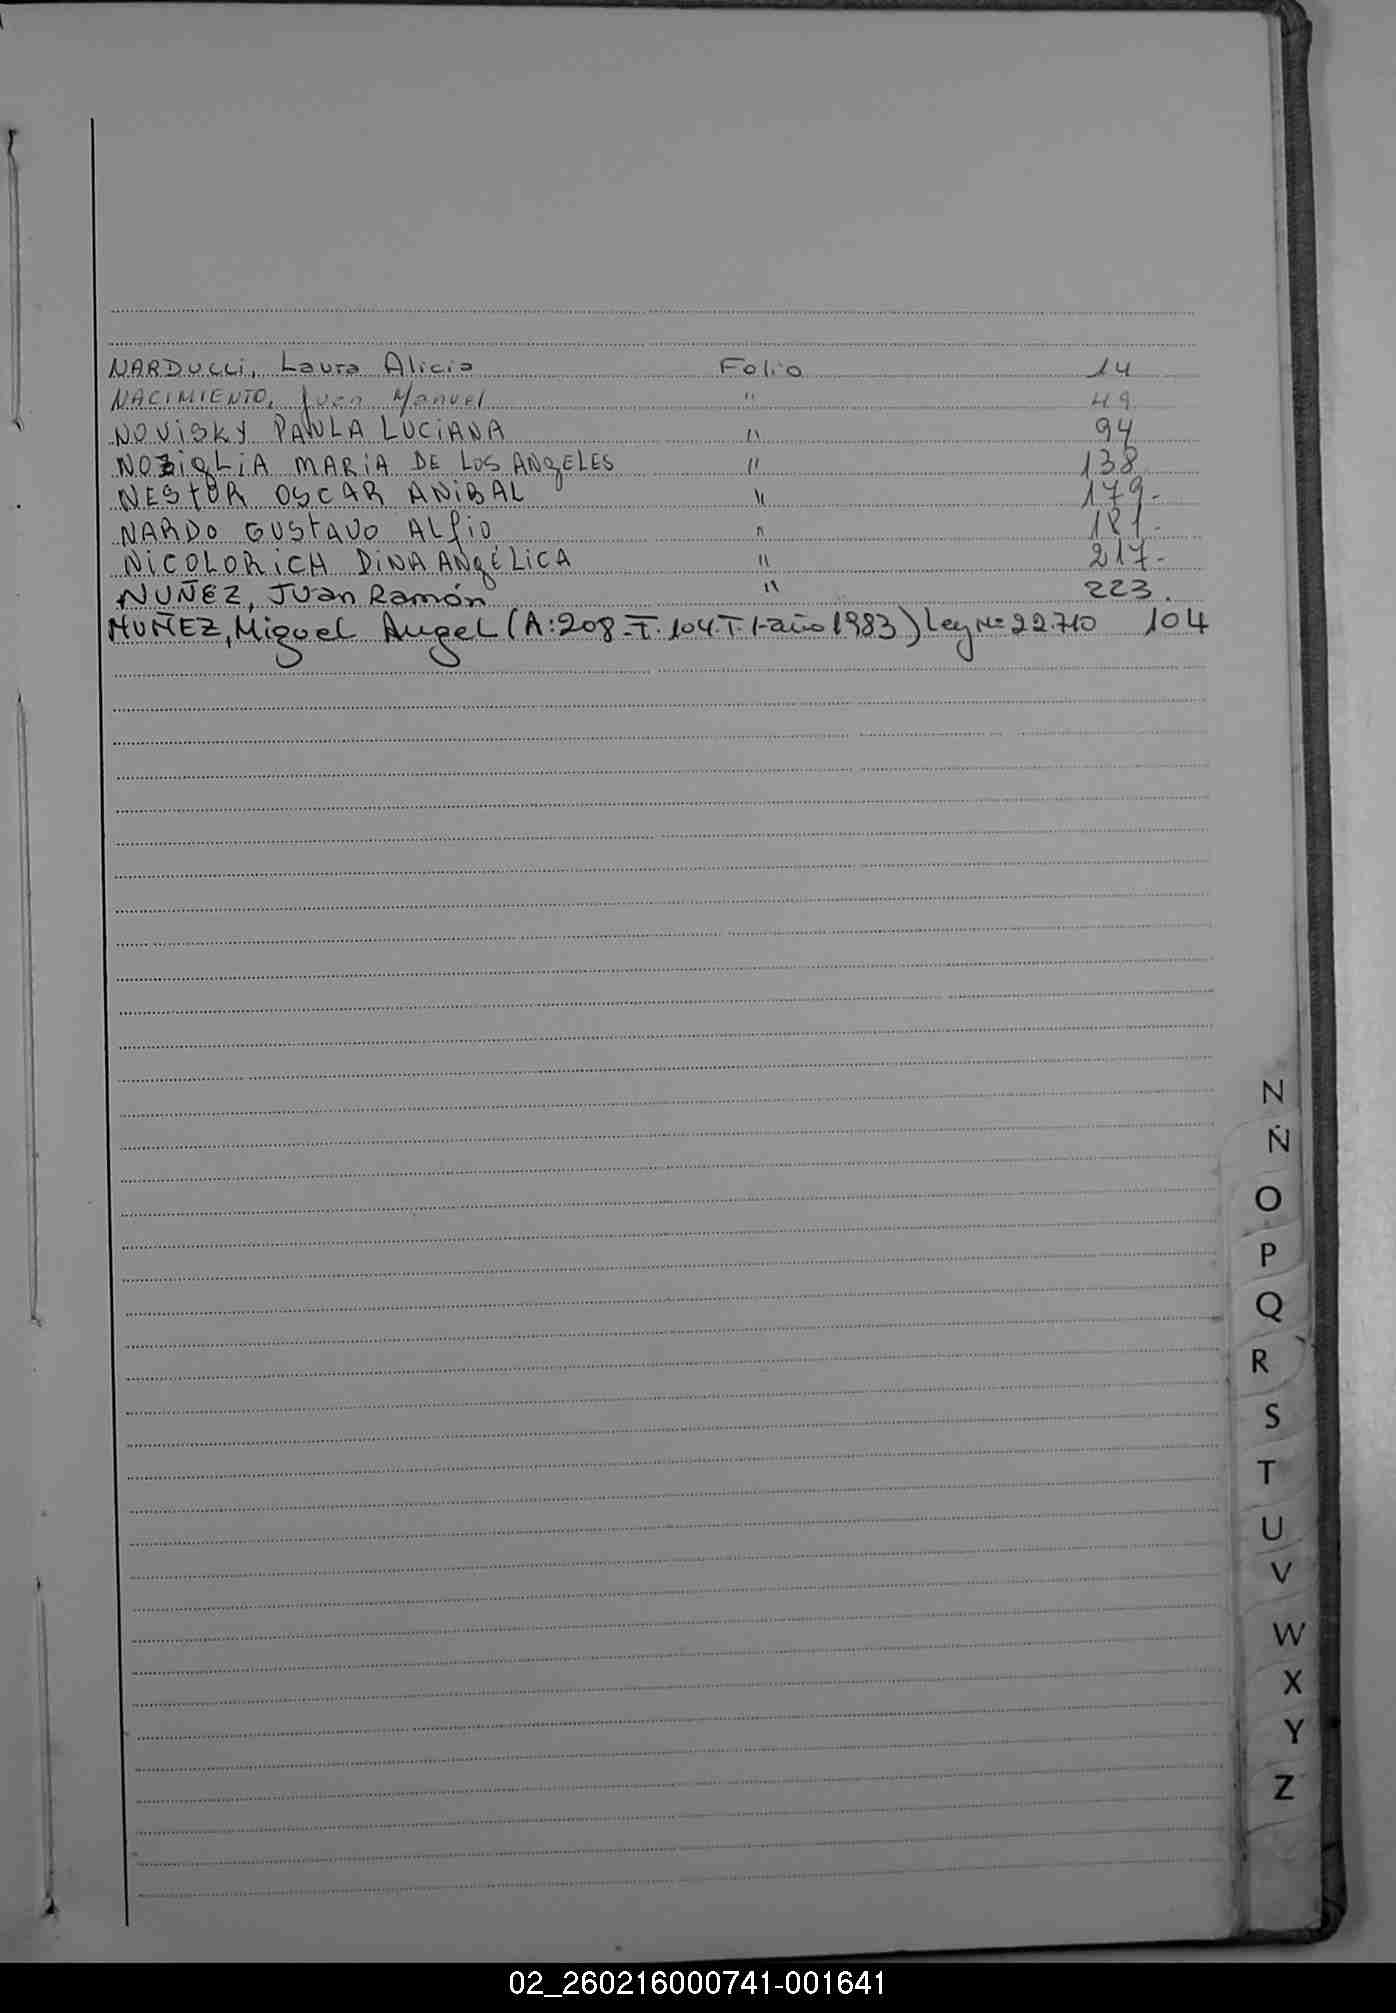 NARDUCCI, Laura Alicia Folio 14
NACIMIENTO, Juan Manuel " 49
NOVISKY PAULA LUCIANA " 94
NOZIGLIA MARIA DE LOS ANGELES " 138
NESTOR OSCAR ANIBAL " 179-
NARDO GUSTAVO ALFIO " 181-
NICOLORICH DINA ANGÉLICA " 217-
NUÑEZ, Juan Ramón " 223.
NUÑEZ, Miguel Angel (A:208-F.104.T.1-año 1983) Ley Nº 22.710 104
N
Ñ
O
P
Q
R
S
T
U
V
W
X
Y
Z
02_260216000741-001641